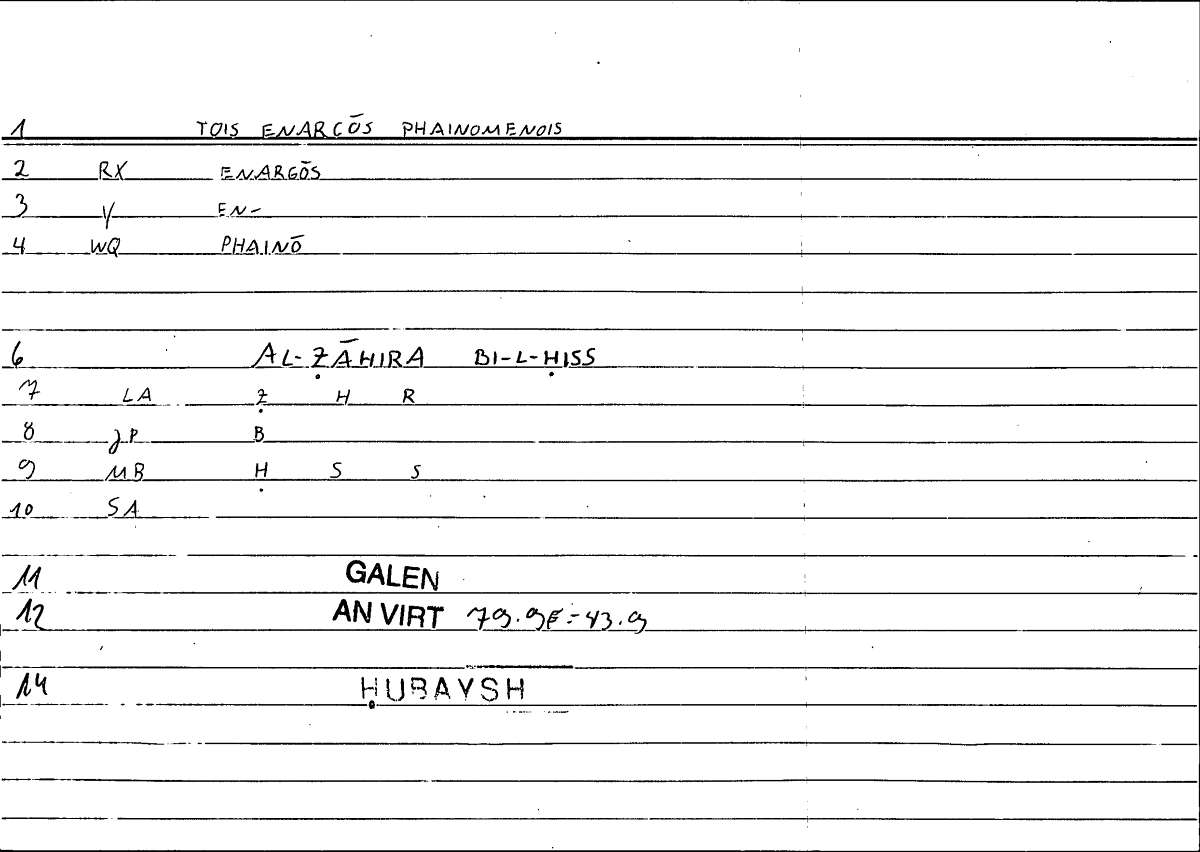 1 TOIS ENARGŌS PHAINOMENOIS
2 RX ENARGŌS
3 Y EN-
4 WQ PHAINŌ
6 AL-ẒĀHIRA BI-L-ḤISS
7 LA Ẓ H R
8 JP B
9 MB Ḥ S S
10 SA
11 GALEN
12 AN VIRT 79.9 43.9
14 ḤUBAYSH